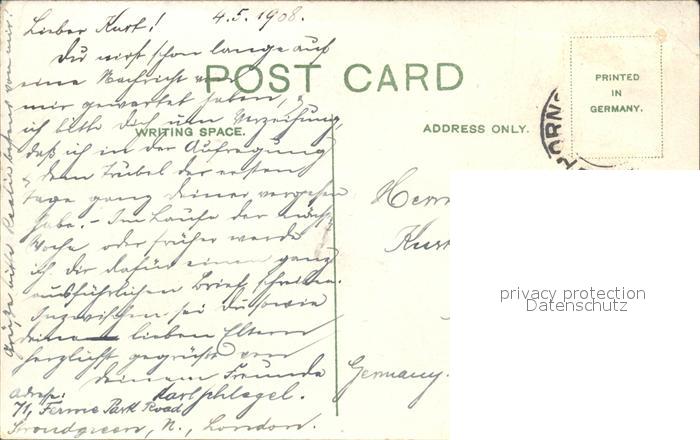 Lieber Kurt! 4.5.1908.
Du wirst schon lange auf
eine Nachricht von
mir gewartet haben, &
ich bitte dich um Verzeihung,
daß ich in der Aufregung
& dem Trubel der ersten
Tage ganz deiner vergessen
habe. - Im Laufe der nächst.
Woche oder früher werde
ich dir dafür einen ganz
ausführlichen Brief schreiben.
Inzwischen sei du sowie
deine lieben Eltern
herzlichst gegrüßt von
deinem Freunde
Karl Schlegel.
Adresse:
71, Ferme Park Road
Stroudgreen, N., London.
Grüße bitte von mir!
POST CARD
WRITING SPACE.
ADDRESS ONLY.
PRINTED
IN
GERMANY.
HORN
Herrn
Kurt
Germany.
privacy protection
Datenschutz